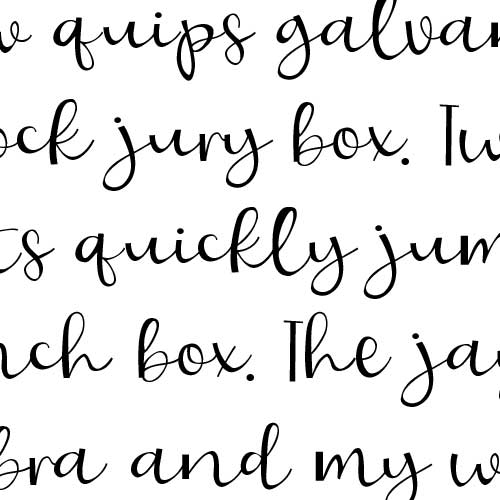 w quips galvan
ock jury box. Tw
ts quickly jum
nch box. The jay
bra and my w